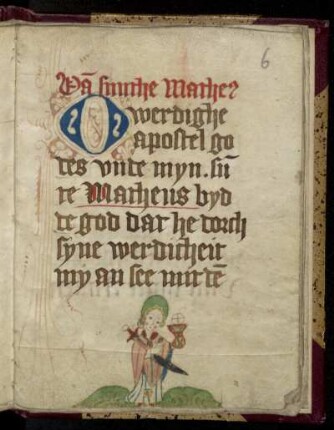 6
Vā sunthe Mathe9
O werdighe
apostel go
des vnde myn. sū
te Matheus byd
de god dat he dorch
syne werdicheit
my an see mit dē